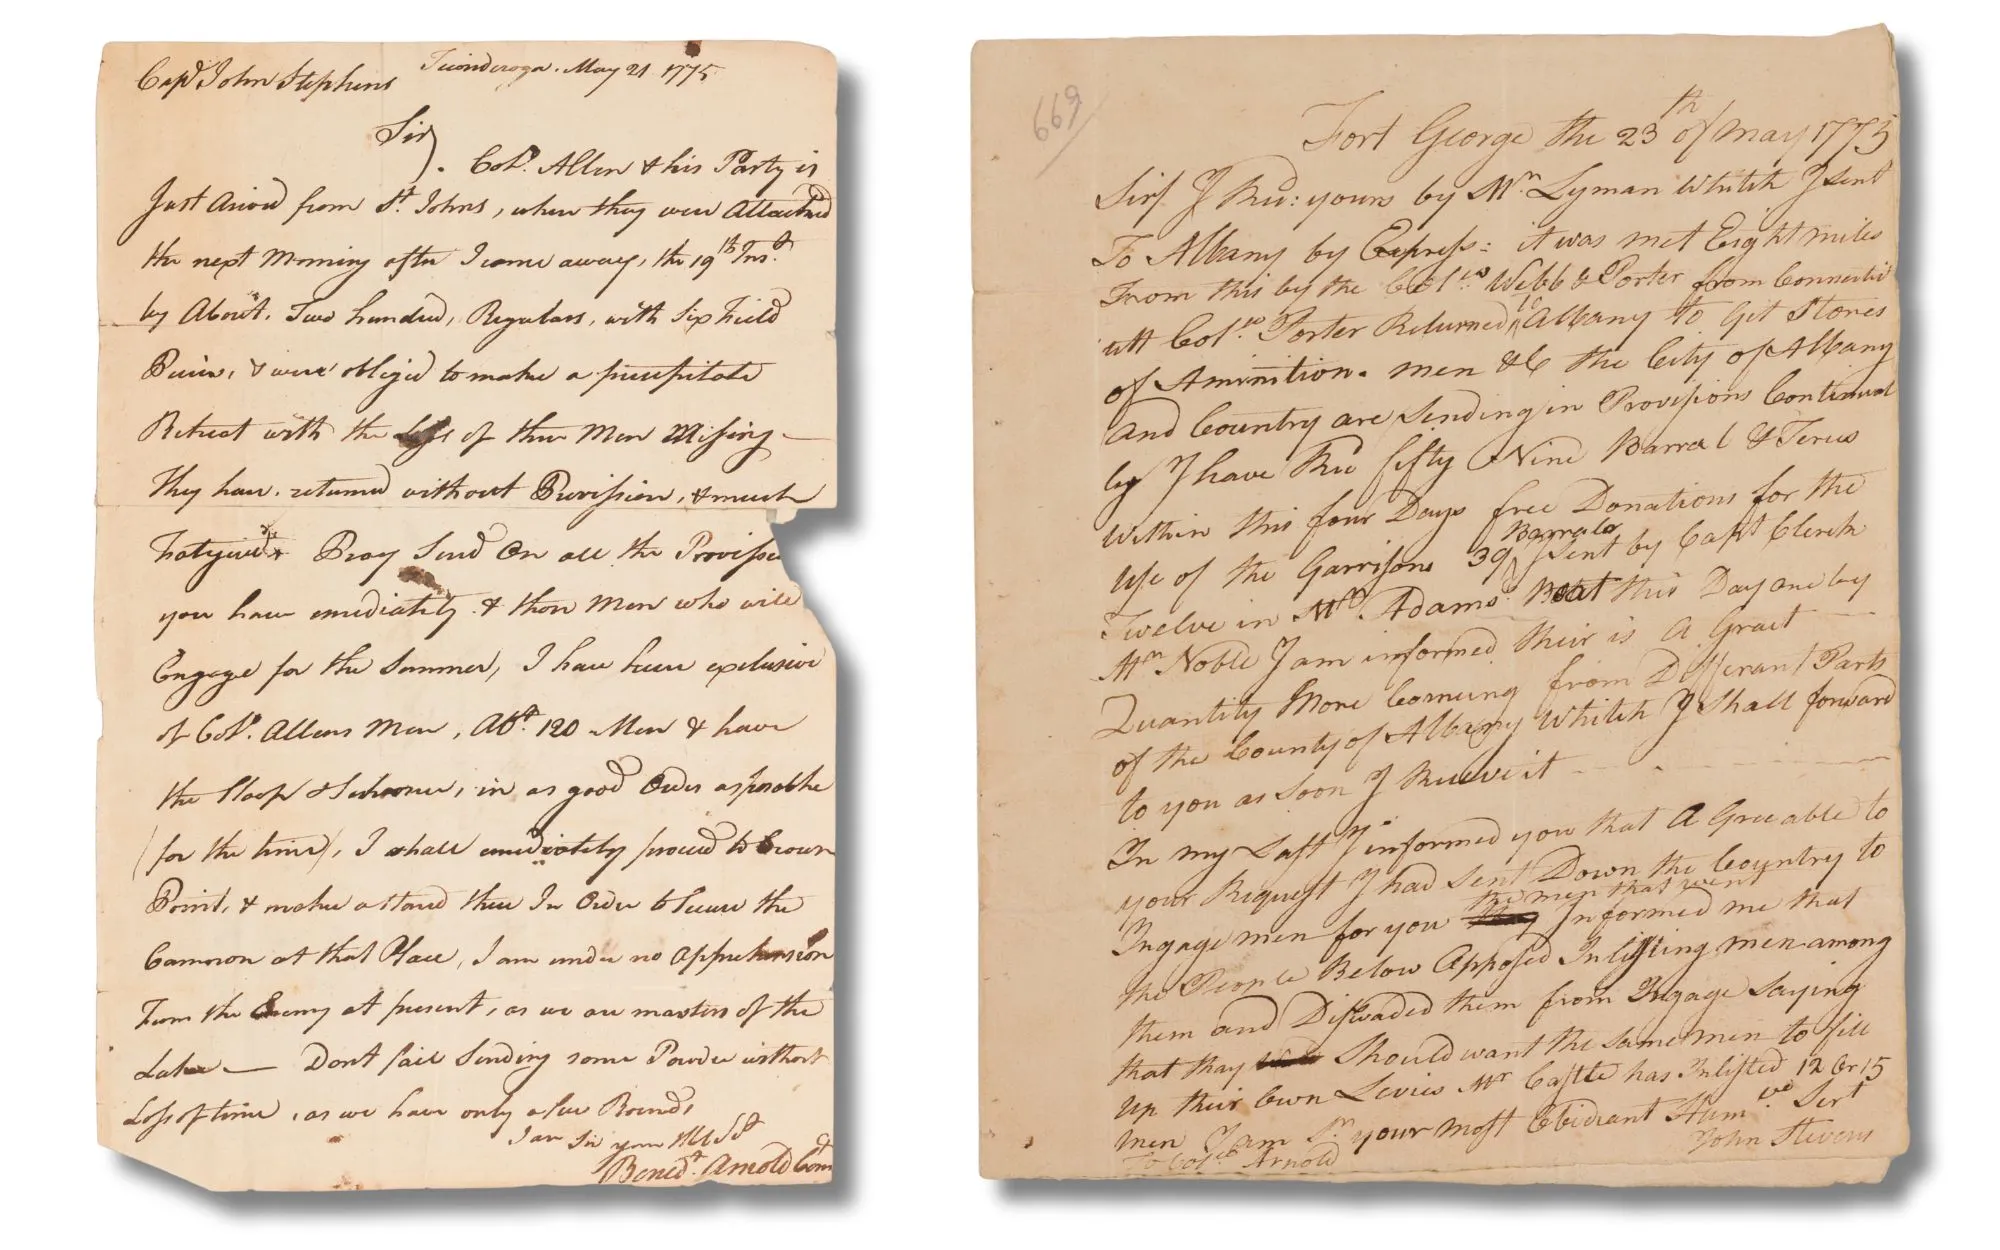 Ticonderoga. May 21 1775
Capt John Stephens
Sir
Colo. Allen & his Party is
Just Arivd from St. Johns, where they were Attackted
the next Morning after I came away, the 19th Inst.
by About. Two hundred, Regulars, with Six Field
Peices, & were obliged to make a precipitate
Retreat with the Loss of three Men Missing —
they have returned without Provission, & much
Fatigued Pray Send On all the Provission
you have imediately & those Men who will
Engage for the Summer, I have here exclusive
of Colo. Allens Men, Abt. 120 Men & have
the Sloop & Schooner, in as good Order as posable
(for the time), I shall imediately proceed to Crown
Point, & make a stand there In Order to Secure the
Cannon at that Place, I am under no Apprehension
From the Enemy at present, as we are masters of the
Lake — Dont fail Sending some Powder without
Loss of time, as we have only a few Rounds
I am Sir your Hble Sert
Bened. Arnold Com
669
Fort George the 23th of may 1775
Sir I Recd: yours by Mr. Lyman Whitch I sent
To Albany by Express: it was met Eight miles
From this by the Webb & Porter from Connectic
utt Porter Returned to Albany to Git Stores
of Aminition. men &c the City of Albany
And Country are Sending in Provisions Continual
ly I have Recd fifty Nine Barral & Terces
within this four Days free Donations for the
Use of the Garrisons 39 Barrals Sent by Capt Clerck
Twelve in Mr. Adams Boat this Day one by
Mr. Noble I am informed their is A Graet
Quantity More Comeing from Differant Parts
of the County of Albany Whitch I Shall forward
to you as Soon I Receive it
In my Last I informed you that A Greeable to
your Request I had Sent Down the Country to
Ingage men for you the men that went Informed me that
the People Below Apposed Inlisting men among
them and Diswaded them from Ingage Saying
that thay Should want the Same men to fill
up their Own Levies Mr Castle has Inlisted 12 Or 15
men I am Sr. your most Obidiant Hum.ble Sert
John Stevens
To Arnold